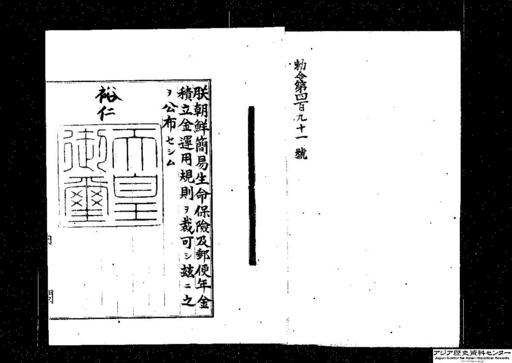 勅令第四百九十一號
朕朝鮮簡易生命保險及郵便年金
積立金運用規則ヲ裁可シ玆ニ之
ヲ公布セシム
裕仁
天皇
御璽
アジア歴史資料センター
Japan Center for Asian Historical Records